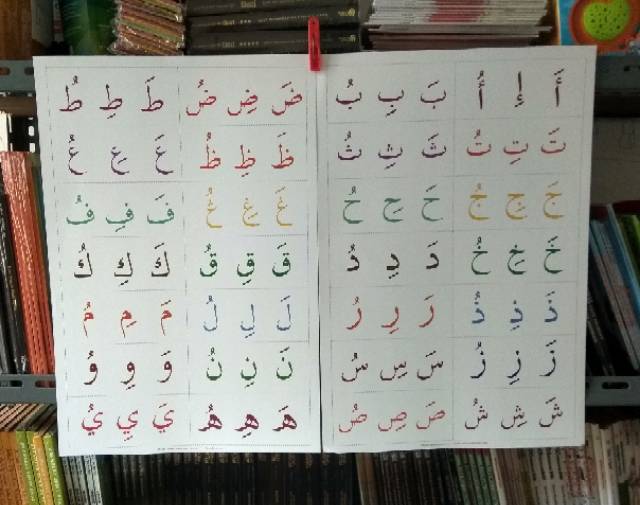 أَ إِ أُ بَ بِ بُ
تَ تِ تُ ثَ ثِ ثُ
جَ جِ جُ حَ حِ حُ
خَ خِ خُ دَ دِ دُ
ذَ ذِ ذُ رَ رِ رُ
زَ زِ زُ سَ سِ سُ
شَ شِ شُ صَ صِ صُ
ضَ ضِ ضُ طَ طِ طُ
ظَ ظِ ظُ عَ عِ عُ
غَ غِ غُ فَ فِ فُ
قَ قِ قُ كَ كِ كُ
لَ لِ لُ مَ مِ مُ
نَ نِ نُ وَ وِ وُ
هَ هِ هُ يَ يِ يُ